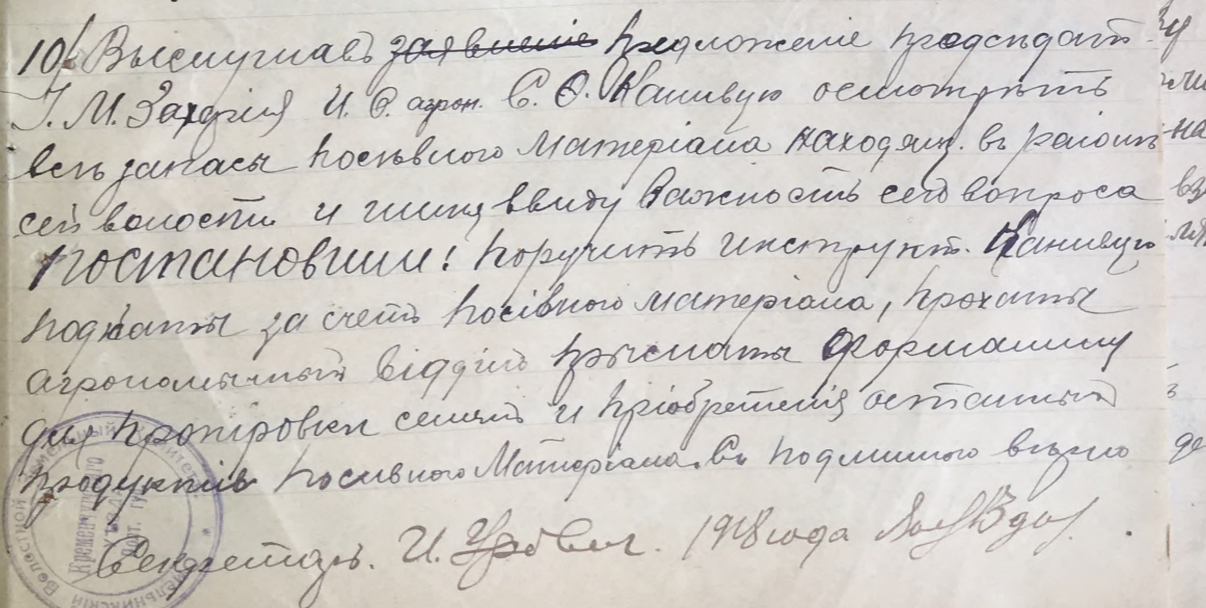 10/ Выслушавъ заявленіе предложеніе предсѣдат.
І. М. Захарія И. О. агрон. С. О. Канивую осмотрѣть
всѣ запасы посѣвного матеріала находящ. въ районѣ
сей волости и ввиду важность сего вопроса
постановили: поручить инструкт. Канивую
поднаты за счетъ посівного матеріала, прохаты
агрономычный відділъ прыслаты формалину
для протровки семянъ и пріобретенія
продуктивъ посивного Матеріала. Съ подлиннымъ вѣрно
Секретарь. И. 1918 года
Волостной Земельный Комитет
Кременчугского
уѣзда
Полт. губ.